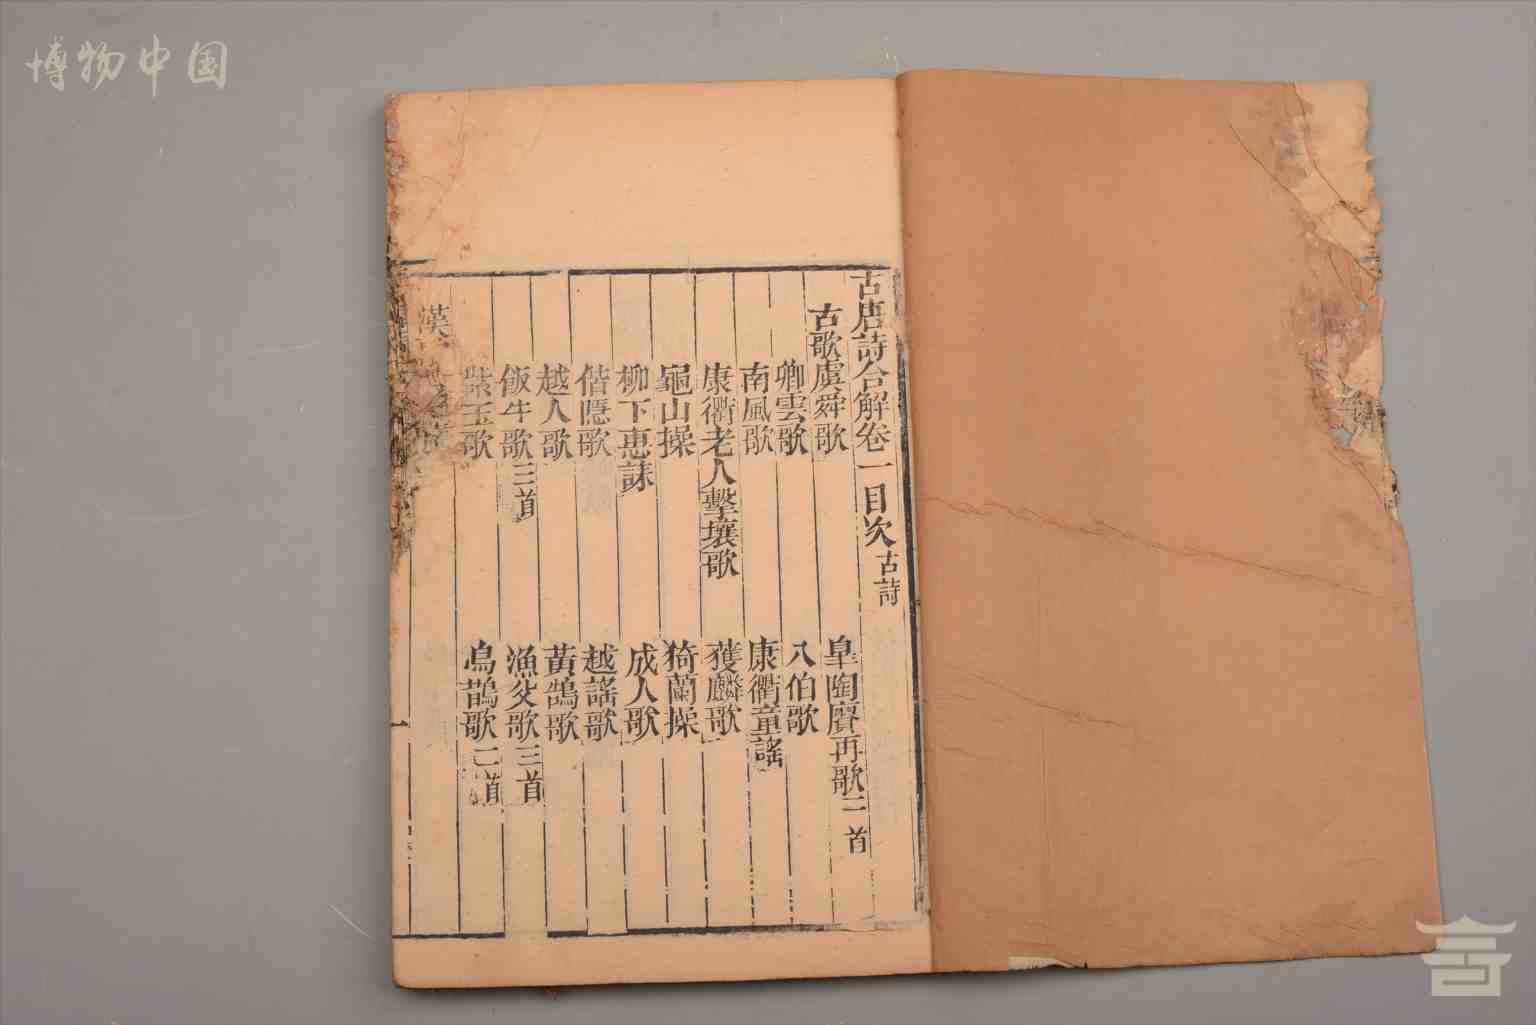 博物中国
古唐詩合解卷一目次 古詩
古歌 虞舜歌 皐陶賡再歌二首
卿雲歌 八伯歌
南風歌 康衢童謠
康衢老人擊壤歌 獲麟歌
龜山操 猗蘭操
柳下惠誄 成人歌
偕隱歌 越謠歌
越人歌 黃鵠歌
飯牛歌三首 漁父歌三首
紫玉歌 烏鵲歌二首
漢
一